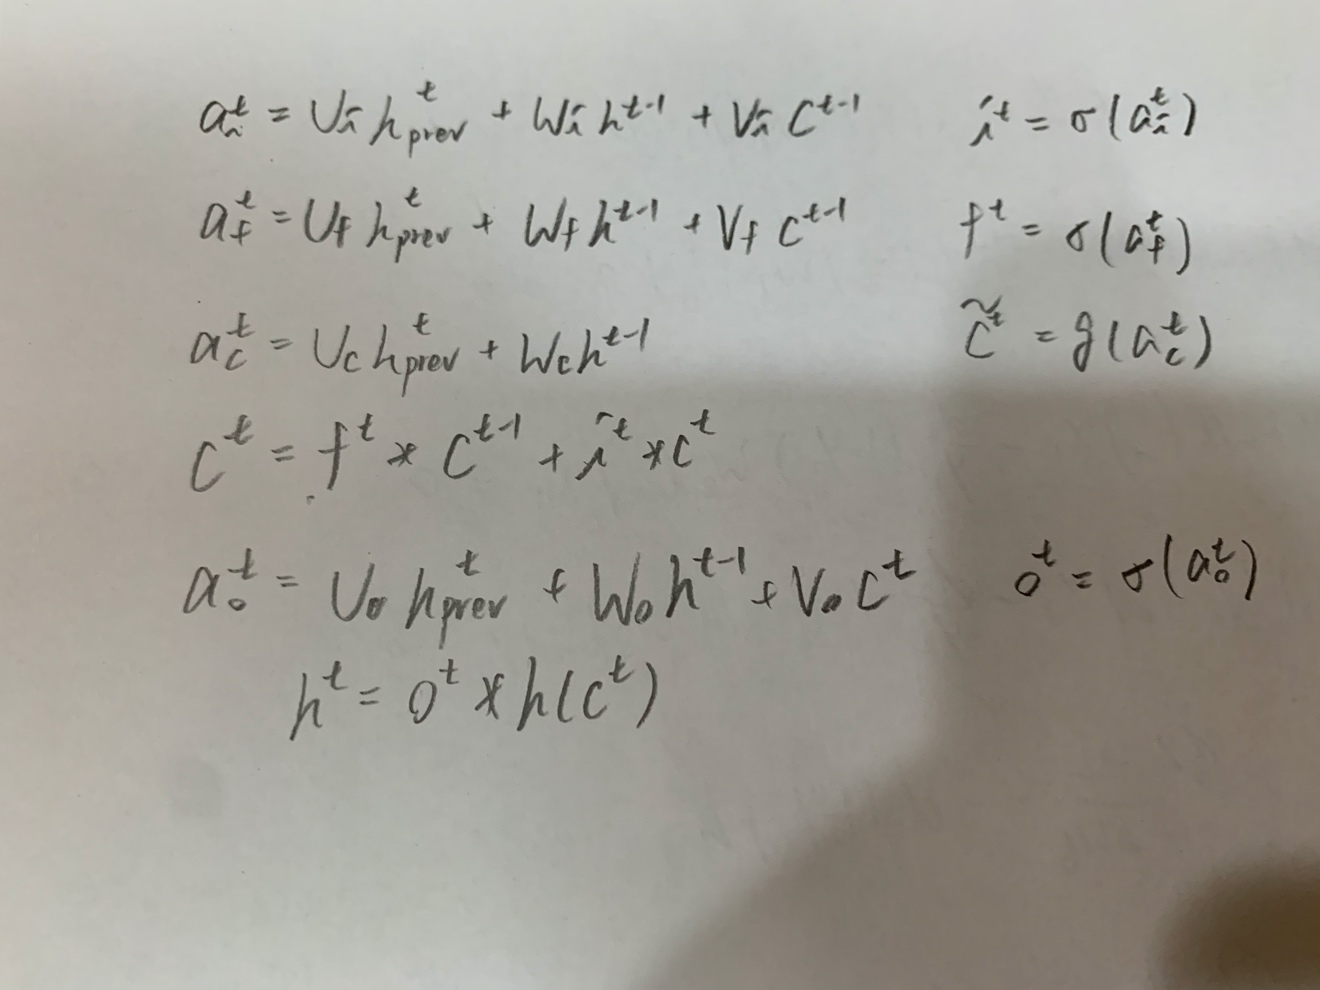 a_i^t = U_i h_prev^t + W_i h^{t-1} + V_i C^{t-1} i^t = σ(a_i^t)
a_f^t = U_f h_prev^t + W_f h^{t-1} + V_f C^{t-1} f^t = σ(a_f^t)
a_c^t = U_c h_prev^t + W_c h^{t-1} C̃^t = g(a_c^t)
C^t = f^t * C^{t-1} + i^t * C^t
a_o^t = U_o h_prev^t + W_o h^{t-1} + V_o C^t o^t = σ(a_o^t)
h^t = o^t * h(C^t)